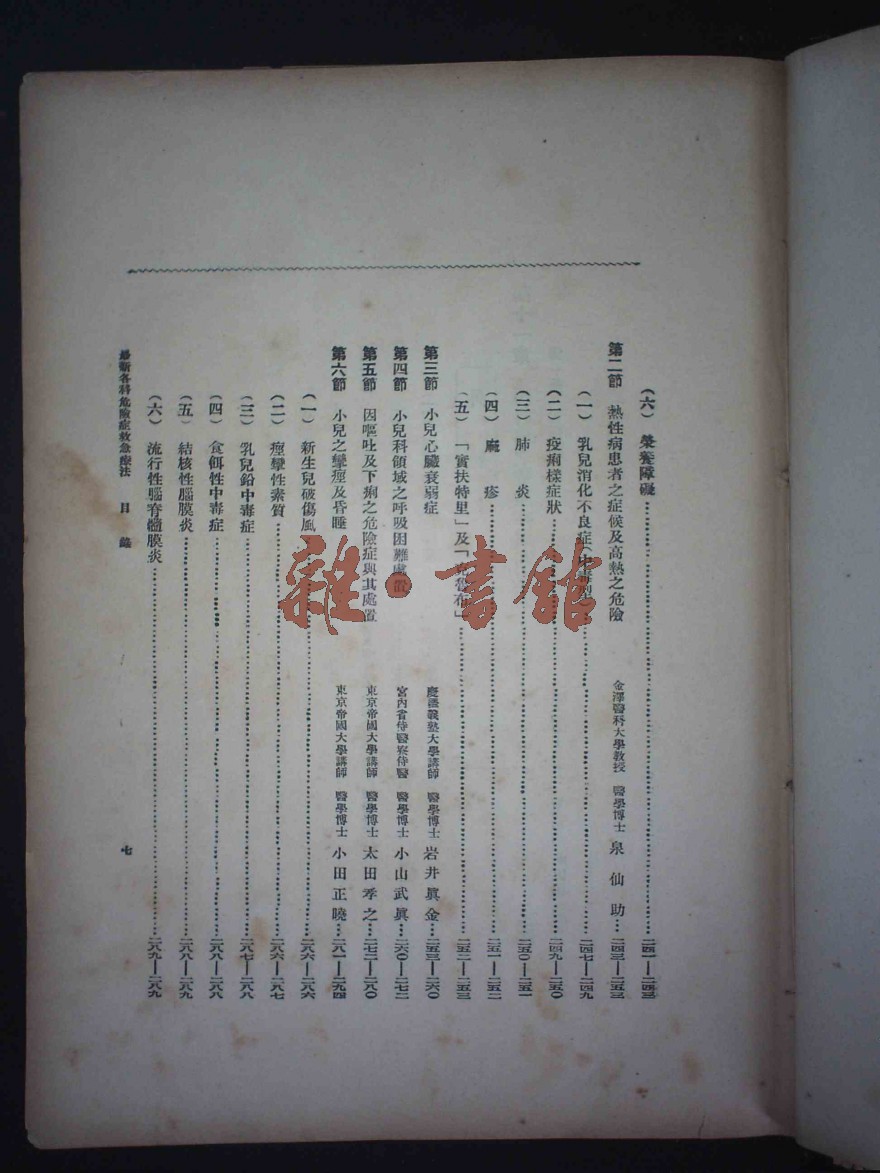 (六) 榮養障礙……二四一—二四三
第二節 熱性病患者之症候及高熱之危險 金澤醫科大學敎授 醫學博士 泉仙助…二四三—二五三
(一) 乳兒消化不良症……二四七—二四九
(二) 疫痢樣症狀……二四九—二五〇
(三) 肺炎……二五〇—二五一
(四) 麻疹……二五一—二五二
(五) 「實扶特里」及「」……二五二—二五三
第三節 小兒心臟衰弱症 慶議義塾大學講師 醫學博士 岩井眞金…二五三—二六〇
第四節 小兒科領域之呼吸困難處置 宮內省侍醫寮侍醫 醫學博士 小山武眞…二六〇—二七二
第五節 因嘔吐及下痢之危險症與其處置 東京帝國大學講師 醫學博士 太田孝之…二七二—二八〇
第六節 小兒之攣瘂及昏睡 東京帝國大學講師 醫學博士 小田正曉…二八一—二九四
(一) 新生兒破傷風……二八六—二八六
(二) 瘂攣性素質……二八六—二八七
(三) 乳兒鉛中毒症……二八七—二八八
(四) 食餌性中毒症……二八八—二八八
(五) 結核性腦膜炎……二八八—二八九
(六) 流行性腦脊髓膜炎……二八九—二八九
最新各科危險症救急療法 目錄 七
雜·書館